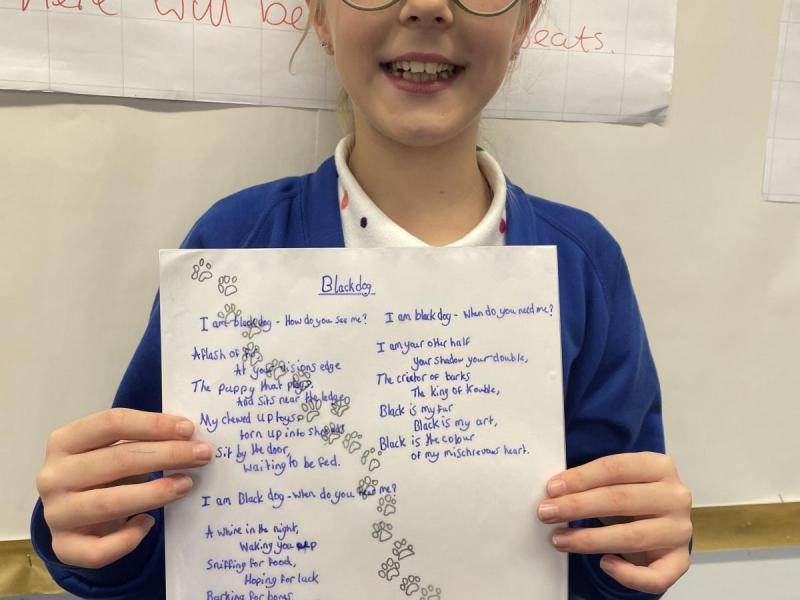 Here will be
seats.
Blackdog
I am blackdog - How do you see me?
A flash of fur
At your visions edge
The puppy that plays
And sits near the ledge
My chewed up toys
torn up into shreds
Sit by the door,
waiting to be fed.
I am Black dog - when do you hear me?
A whine in the night,
Waking you up
Sniffing for food,
Hoping for luck
Barking for bones
I am black dog - When do you need me?
I am your other half
Your shadow your double,
The creator of barks
The king of trouble,
Black is my fur
Black is my art,
Black is the colour
of my mischrevous heart.